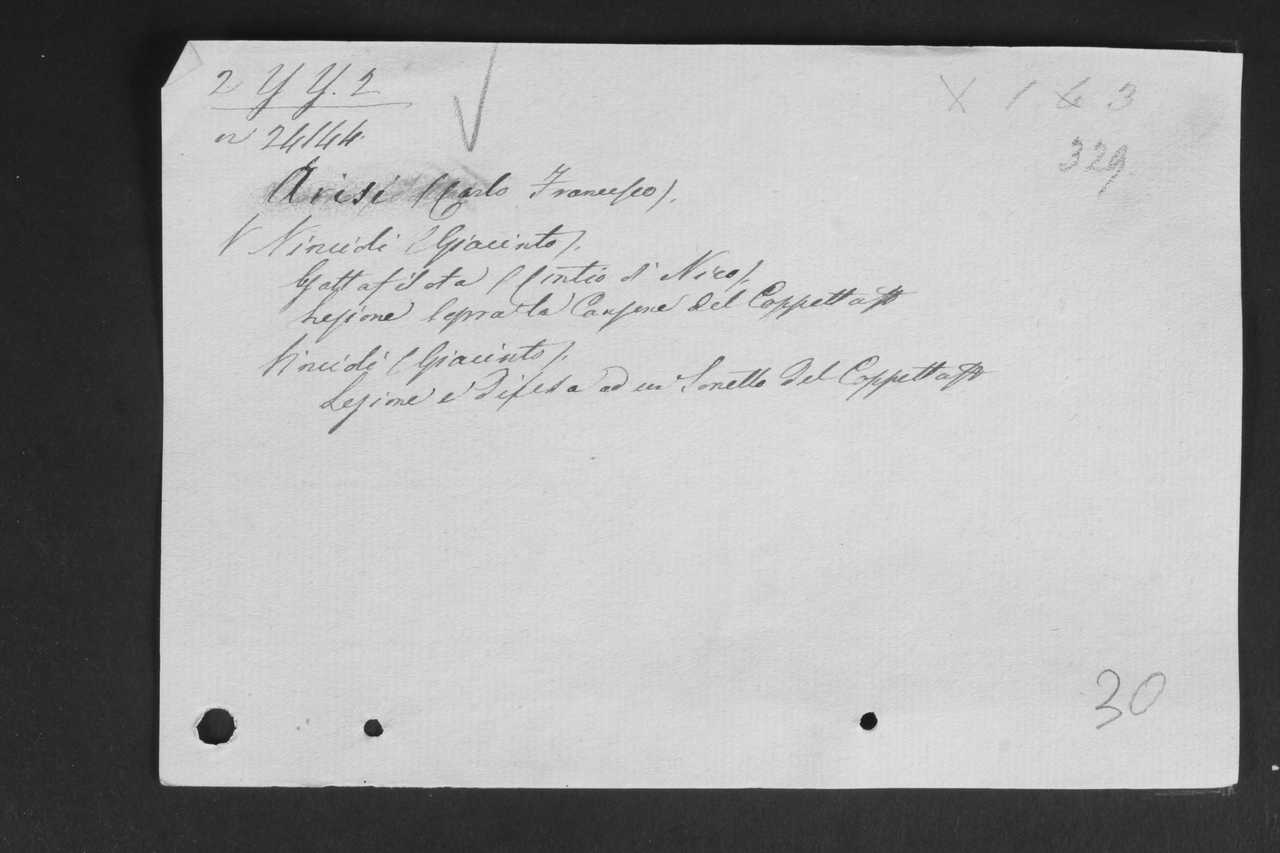 2 YY. 2
X 1 & 3
n 24144
329
Arisi (Carlo Francesco).
V Vincioli (Giacinto).
Gattafilota (Cintio di Nico).
Lezione sopra la Canzone del Coppetta
Vincioli (Giacinto).
Lezione e difesa ad un Sonetto del Coppetta
30